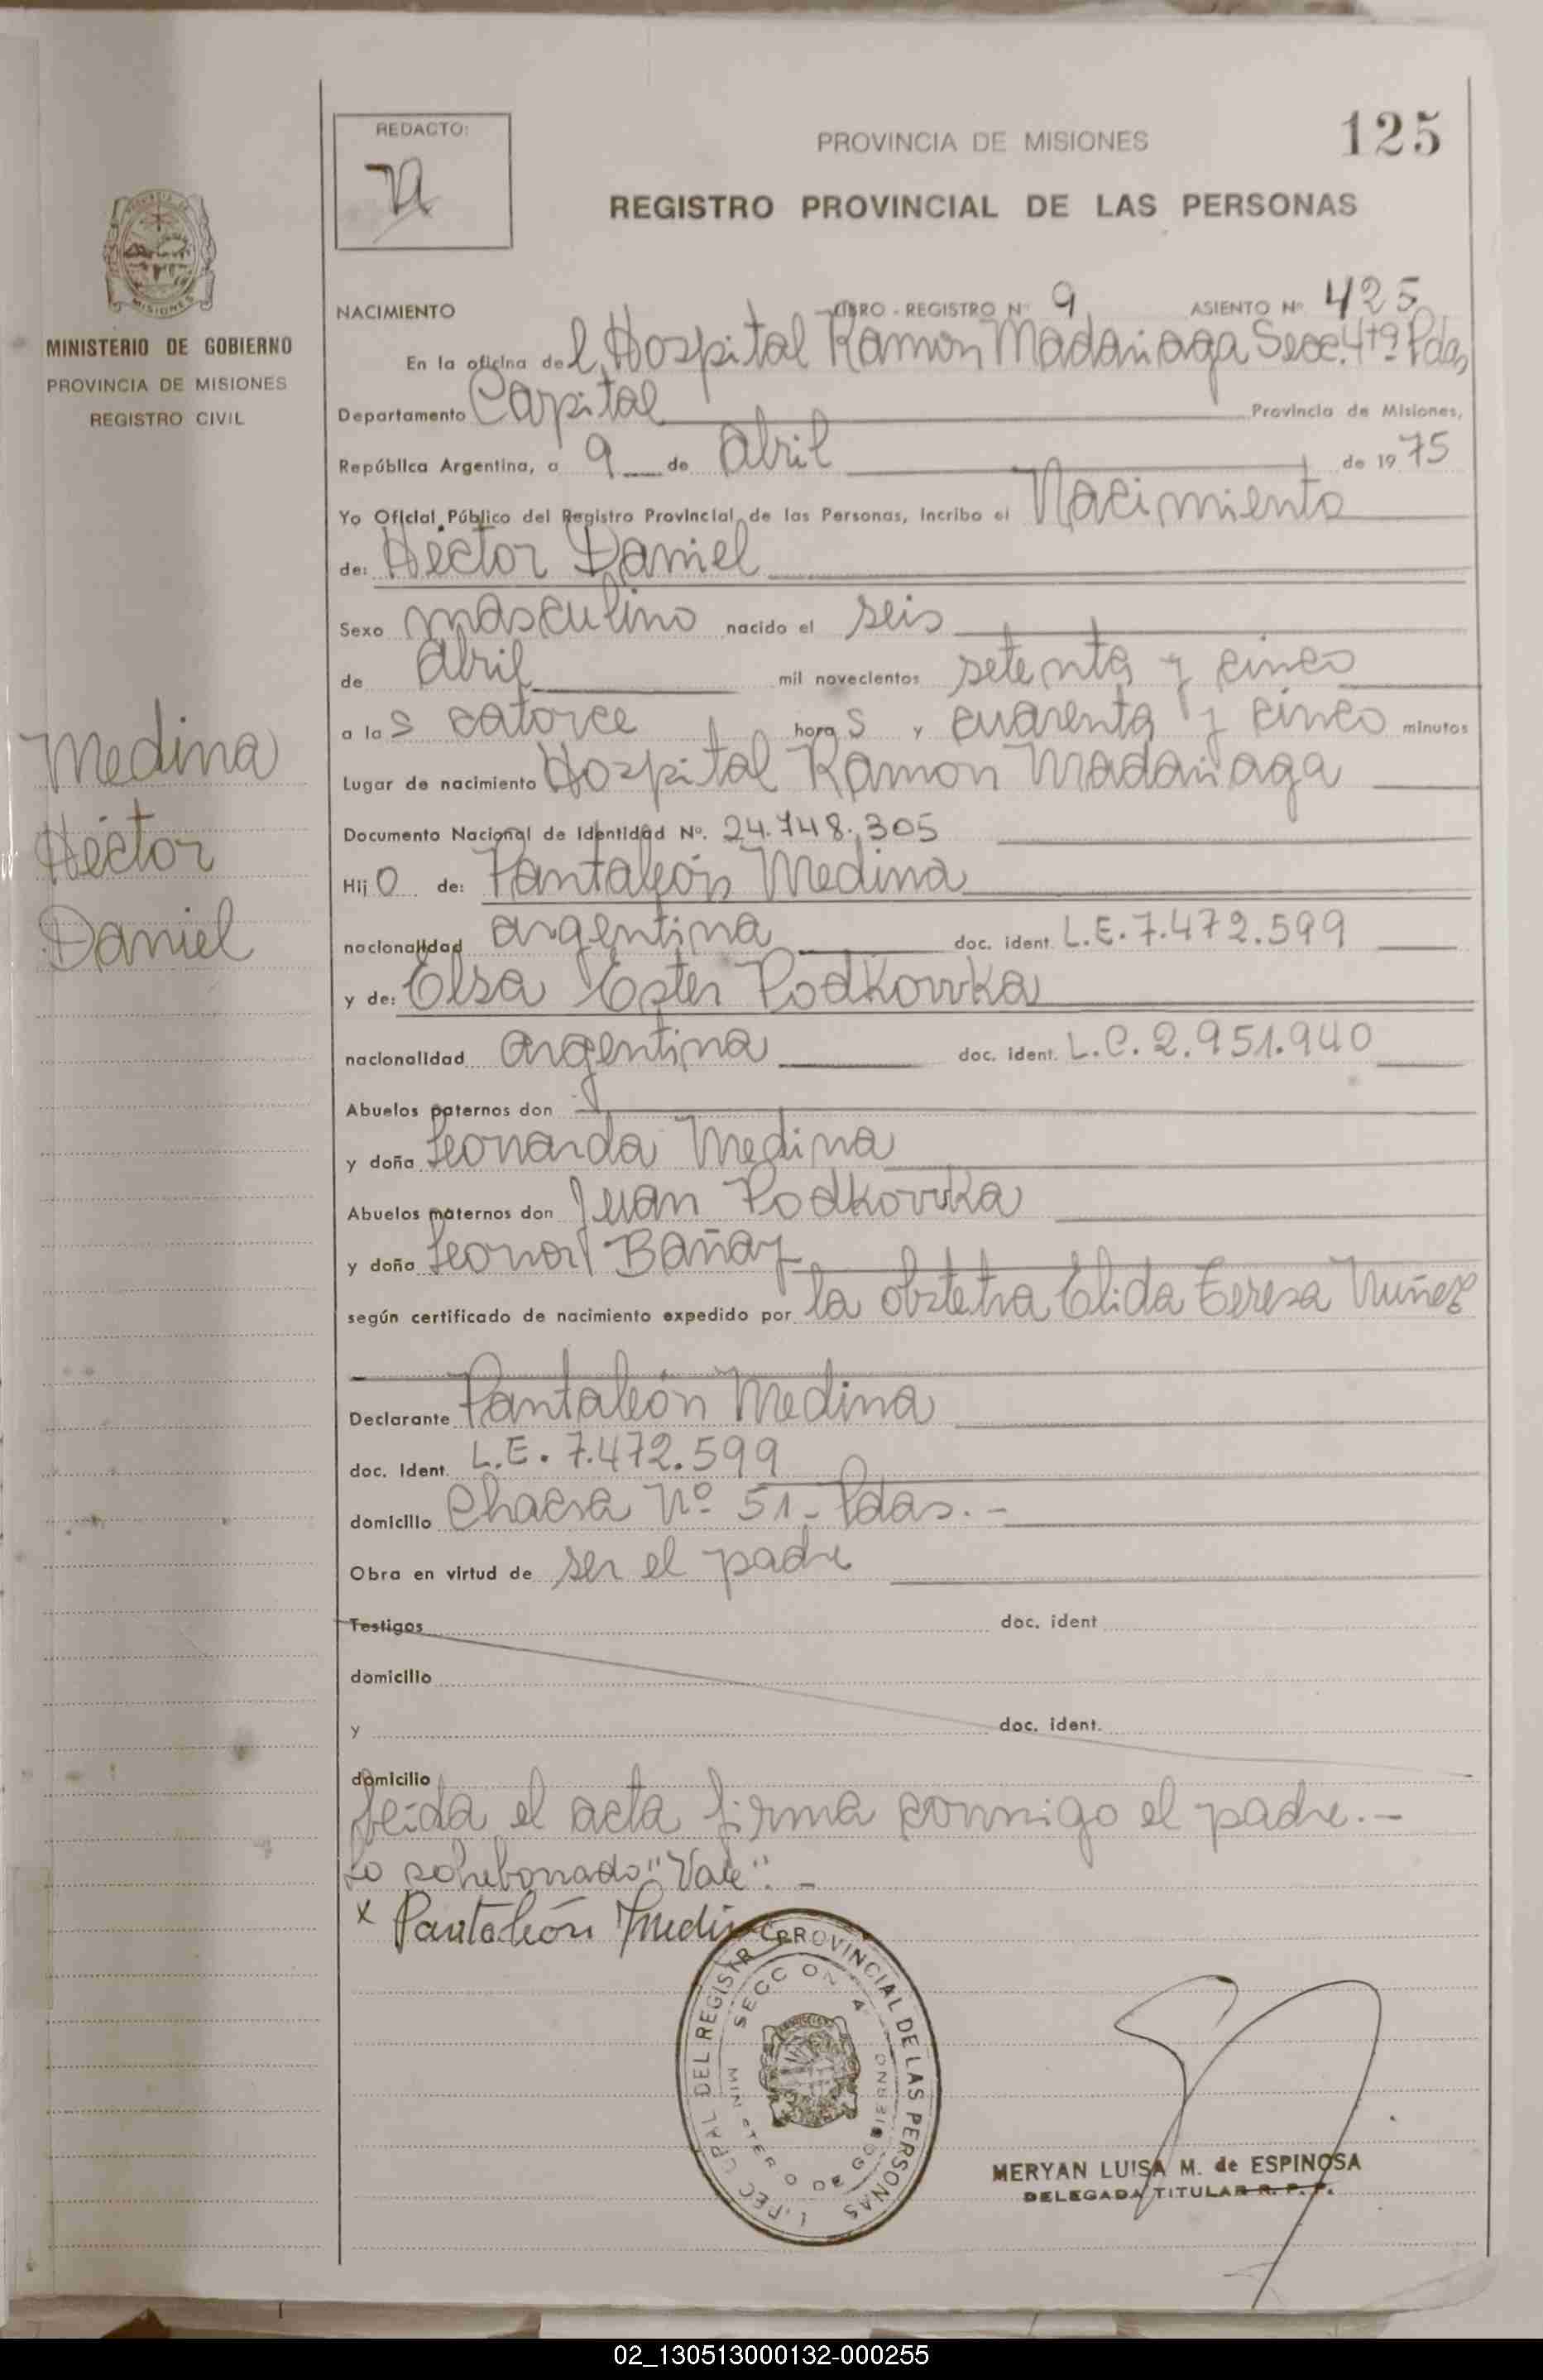 REDACTO:
PROVINCIA DE MISIONES
125
REGISTRO PROVINCIAL DE LAS PERSONAS
MISIONES
MINISTERIO DE GOBIERNO
PROVINCIA DE MISIONES
REGISTRO CIVIL
NACIMIENTO LIBRO - REGISTRO Nº 9 ASIENTO Nº 425
En la oficina del Hospital Ramon Madariaga Secc. 4ta Pdas
Departamento Capital Provincia de Misiones,
República Argentina, a 9 de Abril de 1975
Yo Oficial Público del Registro Provincial de las Personas, incribo el Nacimiento
de: Héctor Daniel
Sexo masculino nacido el seis
de Abril mil novecientos setenta y cinco
a las catorce horas y cuarenta y cinco minutos
Lugar de nacimiento Hospital Ramon Madariaga
Documento Nacional de Identidad Nº. 24.748.305
Hijo de: Pantaleón Medina
nacionalidad argentina doc. ident. L.E. 7.472.599
y de: Elsa Ester Podkowka
nacionalidad argentina doc. ident. L.C. 2.951.940
Abuelos paternos don
y doña Leonarda Medina
Abuelos maternos don Juan Podkowka
y doña Leonor Bañay
según certificado de nacimiento expedido por la obstetra Elida Teresa Nuñez
Declarante Pantaleón Medina
doc. Ident. L.E. 7.472.599
domicilio Chacra Nº 51 - Pdas. -
Obra en virtud de ser el padre
Testigos doc. ident
domicilio
y doc. ident.
domicilio
Leida el acta firma conmigo el padre. -
Lo sobreborrado "Vale". -
x Pantaleón Medina
Medina
Héctor
Daniel
PROVINCIAL DE LAS PERSONAS
MERYAN LUISA M. de ESPINOSA
DELEGADA TITULAR R. P. P.
02_130513000132-000255